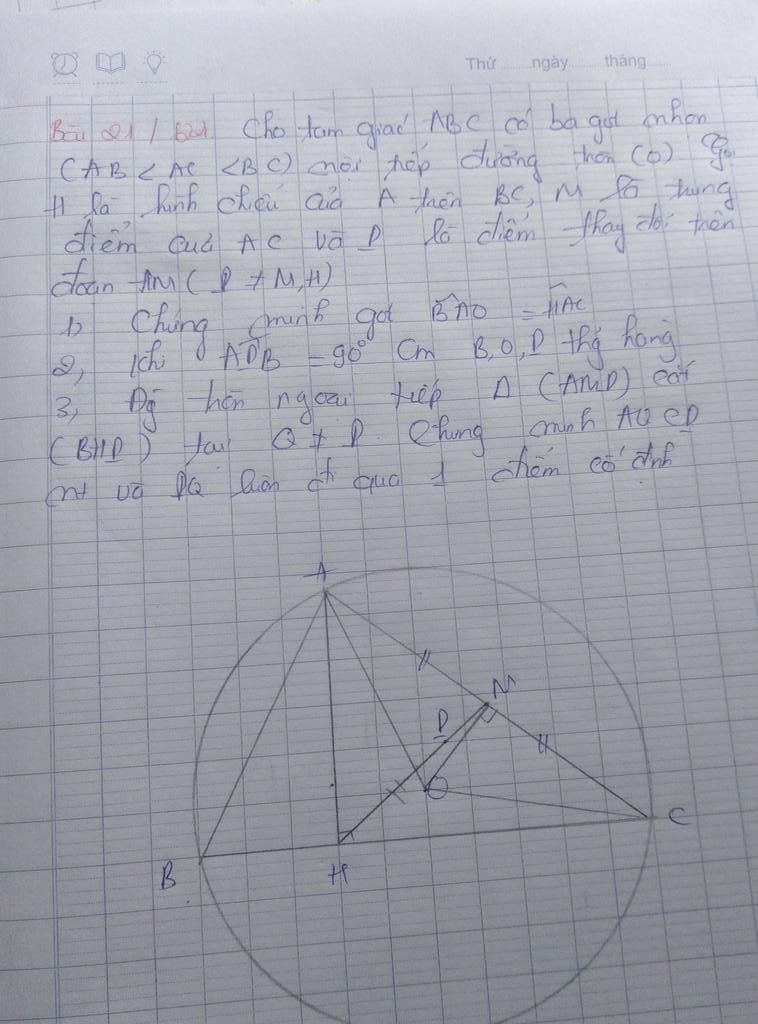 Thứ ngày tháng
Bài 21 / Cho tam giác ABC có ba góc nhọn
(AB < AC < BC) nội tiếp đường tròn (O) Gọi
H là hình chiếu của A trên BC, M là trung
điểm của AC và P là điểm thay đổi trên
đoạn HM ( P ≠ M, H)
1, Chứng minh góc BAO = HAC
2, Khi APB = 90° Cm B, O, P thẳng hàng
3, Đg tròn ngoại tiếp Δ (AMP) cắt
(BHP) tại Q ≠ P. Chứng minh AQ CP
nt và PQ luôn đi qua 1 điểm cố định
A
M
P
O
C
B
H